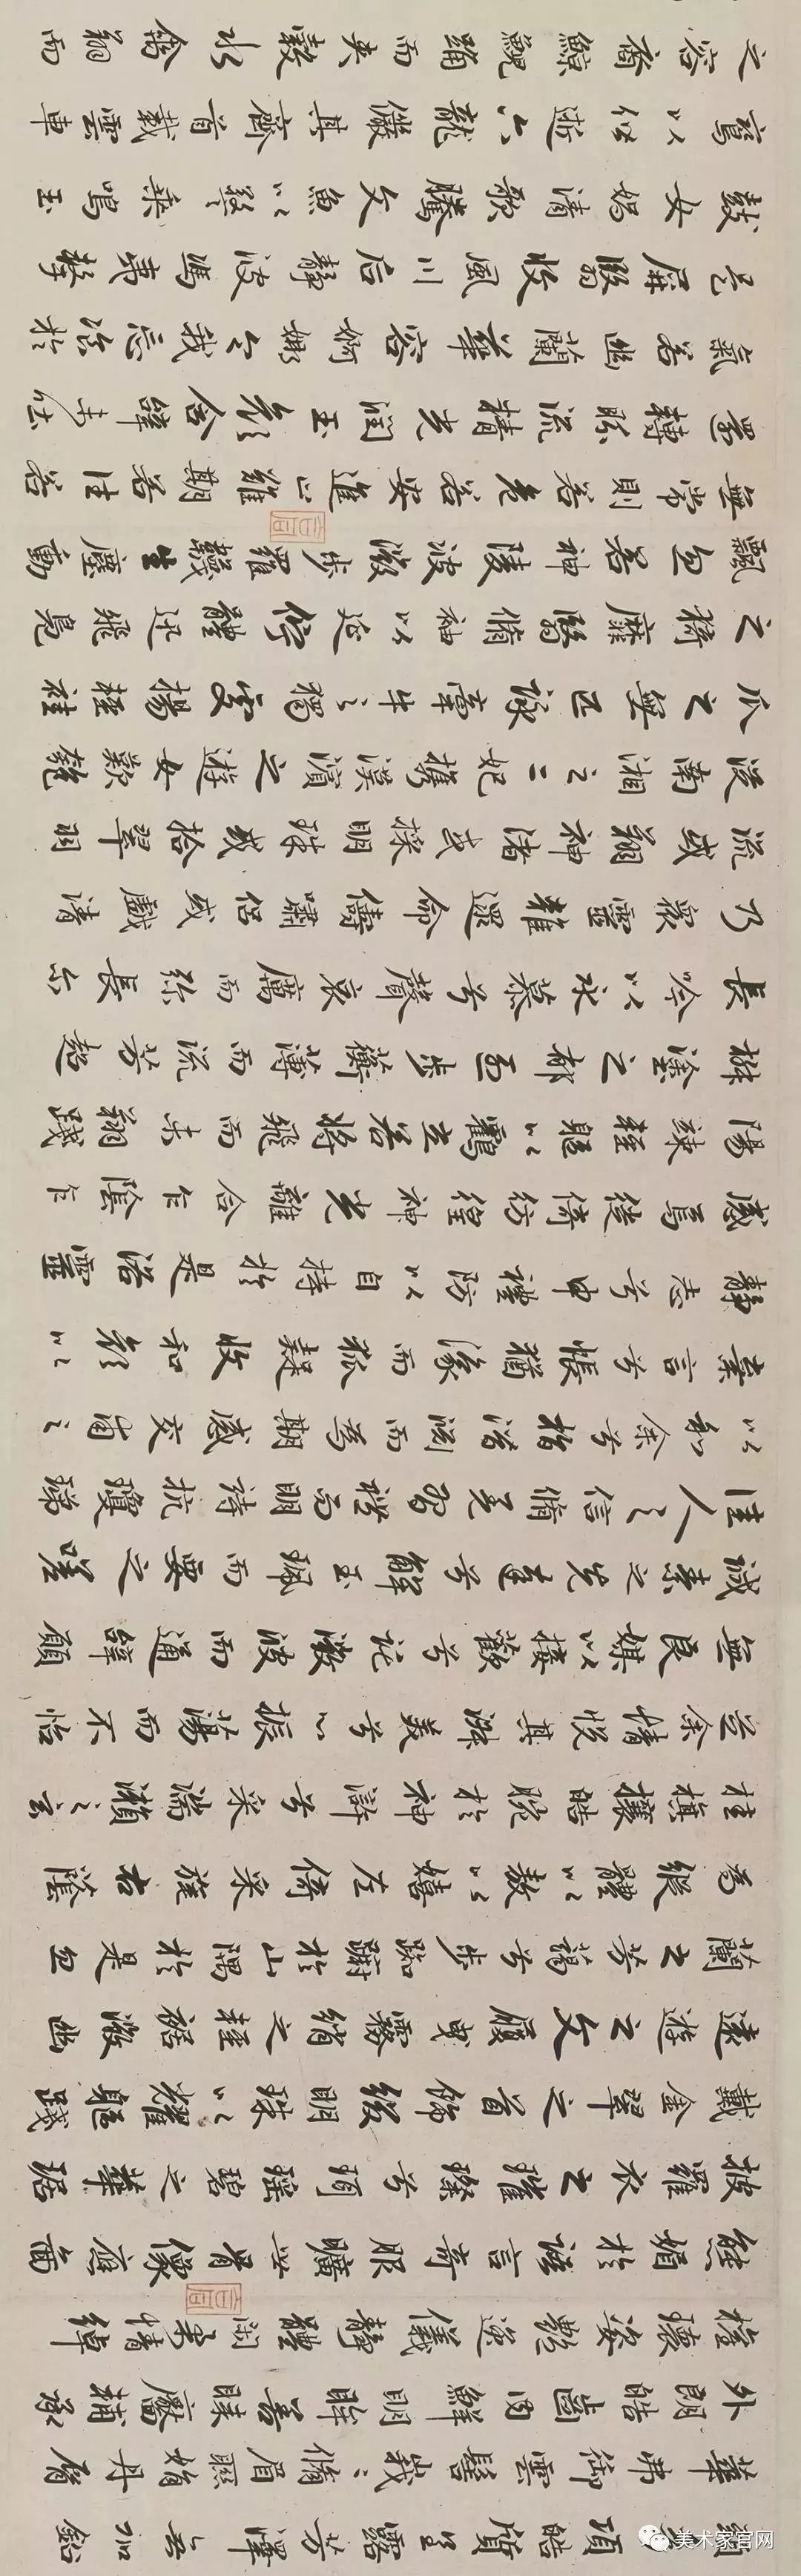 項皓質呈露芳澤無加鉛
華弗御雲髻峨々脩眉聯娟丹脣
外朗皓齒內鮮明眸善睞靨輔承
權瓌姿艷逸儀靜體閑柔情綽
態媚於語言奇服曠世骨像應圖
披羅衣之璀璨兮珥瑤碧之華琚
戴金翠之首飾綴明珠以耀軀踐
遠遊之文履曳霧綃之輕裾微幽
蘭之芳藹兮步踟躕於山隅於是忽
焉縱體以敖以嬉左倚采旄右蔭
桂旗攘皓腕於神滸兮采湍瀨之玄
芝余情悅其淑美兮心振蕩而不怡
無良媒以接歡兮託微波而通辭願
誠素之先達兮解玉珮而要之嗟
佳人之信脩羌習禮而明詩抗瓊珶
以和余兮指潛淵而為期感交甫之
棄言兮悵猶豫而狐疑收和顏以
靜志兮申禮防以自持於是洛靈
感焉徙倚彷徨神光離合乍陰乍
陽竦輕軀以鶴立若將飛而未翔踐
椒塗之郁烈步蘅薄而流芳超
長吟以永慕兮聲哀厲而彌長尔
乃眾靈雜遝命儔嘯侶或戲清
流或翔神渚或採明珠或拾翠羽
從南湘之二妃攜漢濱之遊女歎匏
瓜之無匹詠牽牛之獨處揚輕袿
之猗靡翳脩袖以延佇體迅飛鳧
飄忽若神陵波微步羅韈生塵動
無常則若危若安進止難期若往若
還轉眄流精光潤玉顏含辭未吐
氣若幽蘭華容婀娜令我忘飡於
是屏翳收風川后靜波馮夷擊
鼓女媧清歌騰文魚以警乘鳴玉
鸞以偕逝六龍儼其齊首載雲車
之容裔鯨鯢踊而夾轂水禽翔而
美术家官网